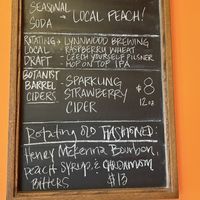 SEASONAL
SODA → LOCAL PEACH!
ROTATING → LYNNWOOD BREWING
LOCAL - RASPBERRY WHEAT
DRAFT - CZECH YOURSELF PILSNER
- HOP ON TOP IPA
BOTANIST
BARREL
CIDERS:
SPARKLING
STRAWBERRY
CIDER
$8
12oz
Rotating OLD FASHIONED:
Henry McKenna Bourbon,
PEACH SYRUP, & CARDAMOM
BITTERS $13